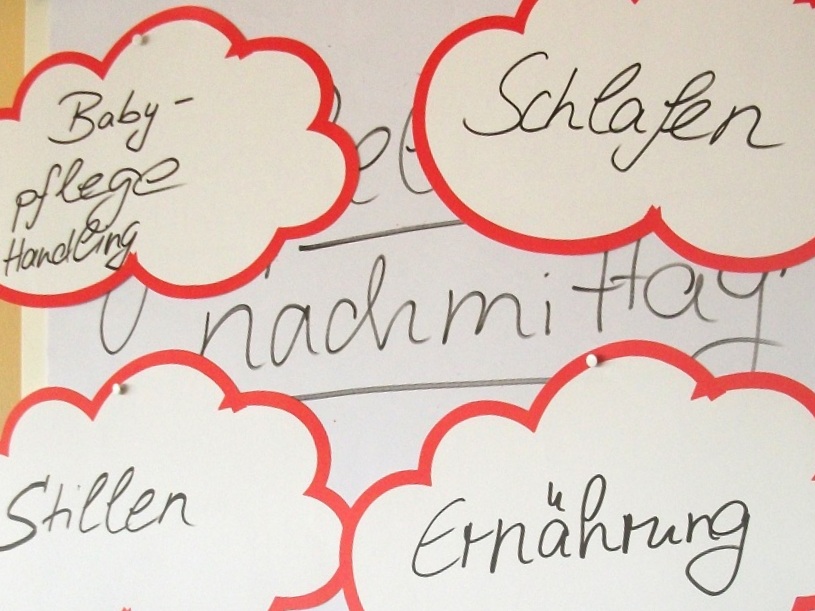 Baby-
pflege
Handling
Schlafen
nachmittag
Stillen
Ernährung